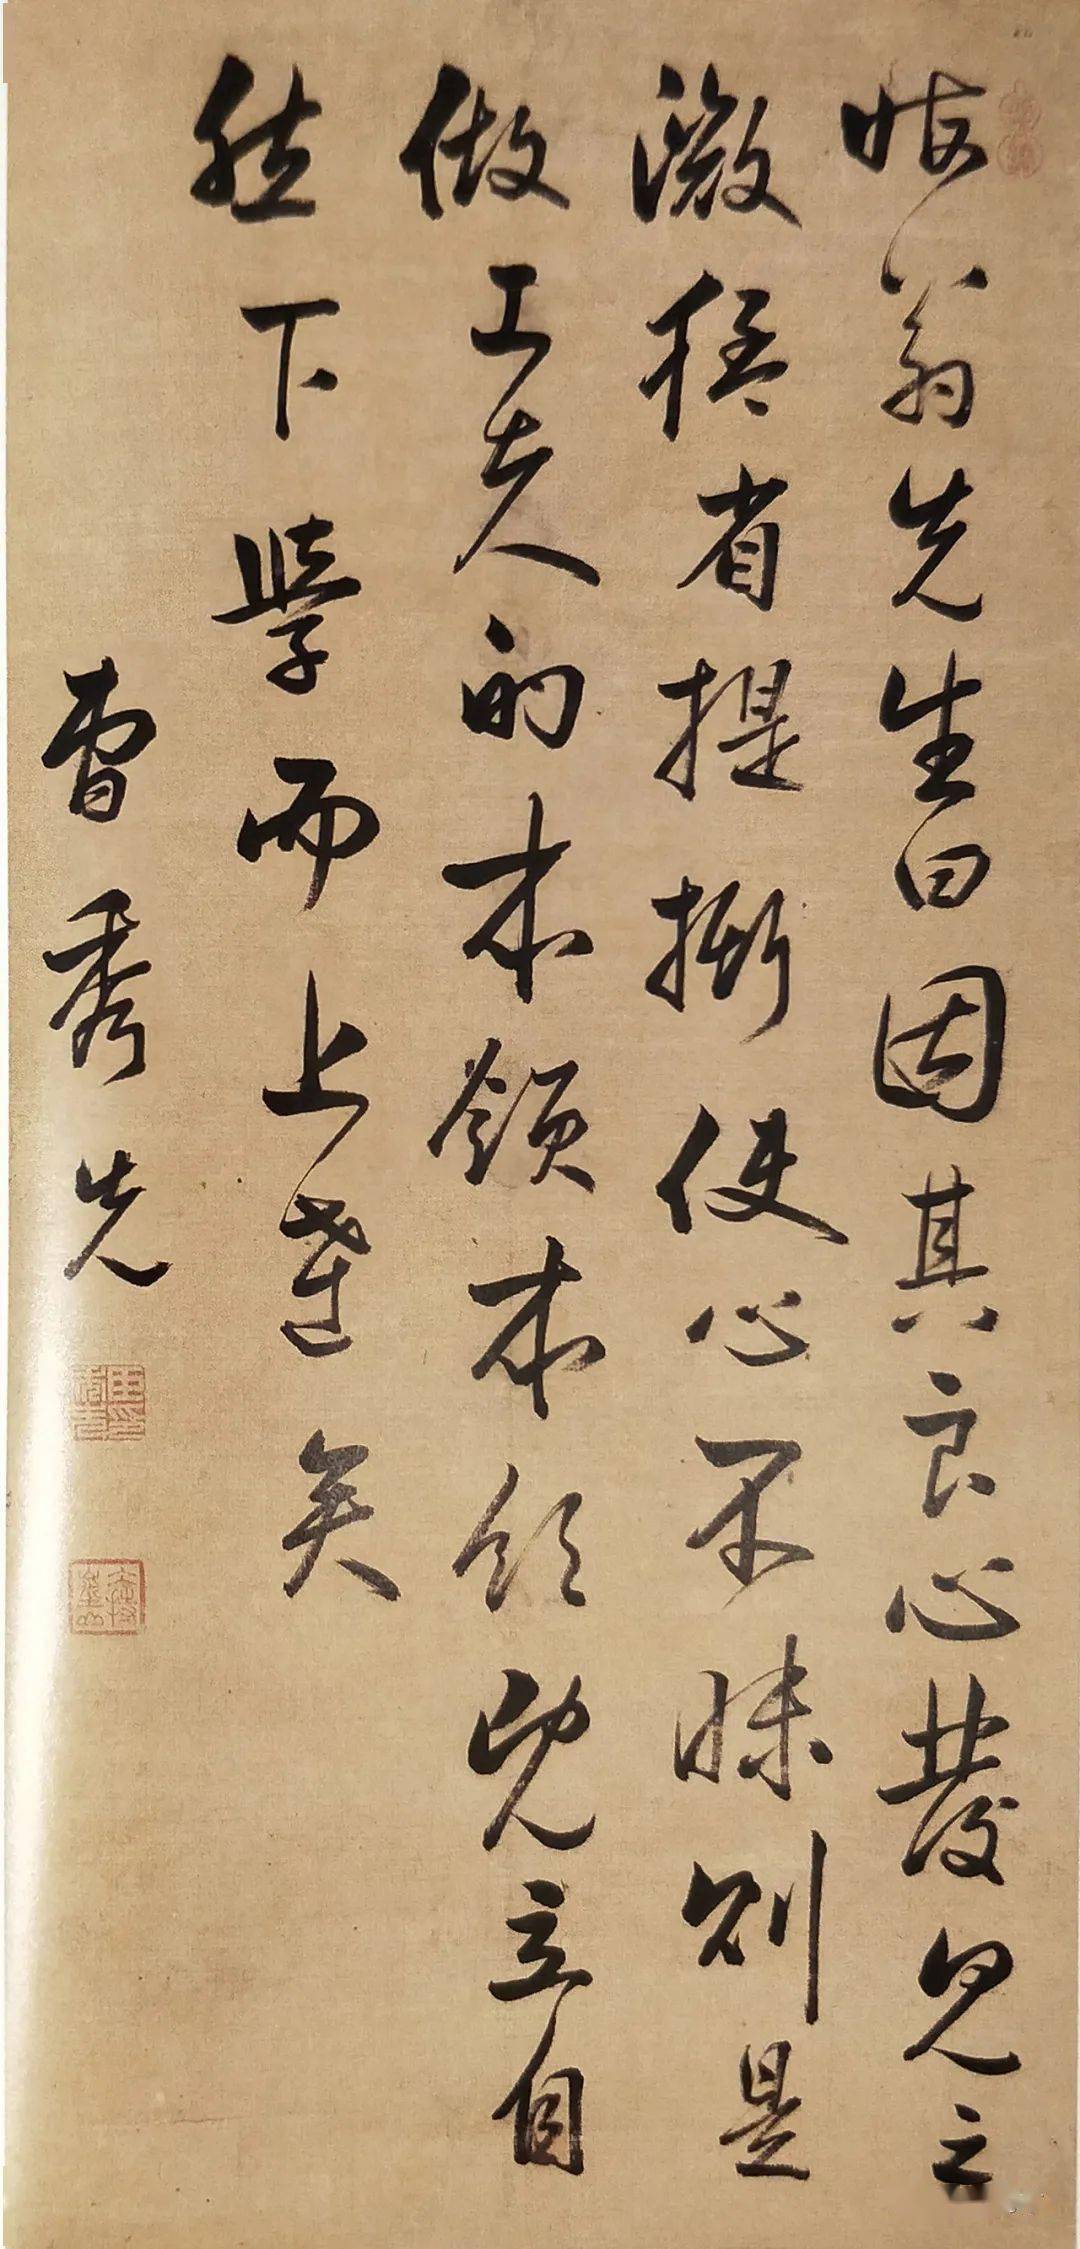 晦翁先生曰因其良心發見之
微猛省提撕使心不昧則是
做工夫的本領本領既立自
然下學而上達矣
曹秀先